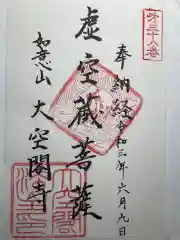 第三十八番
奉納経
令和三年六月九日
虚空蔵菩薩
如意山
大空閣寺